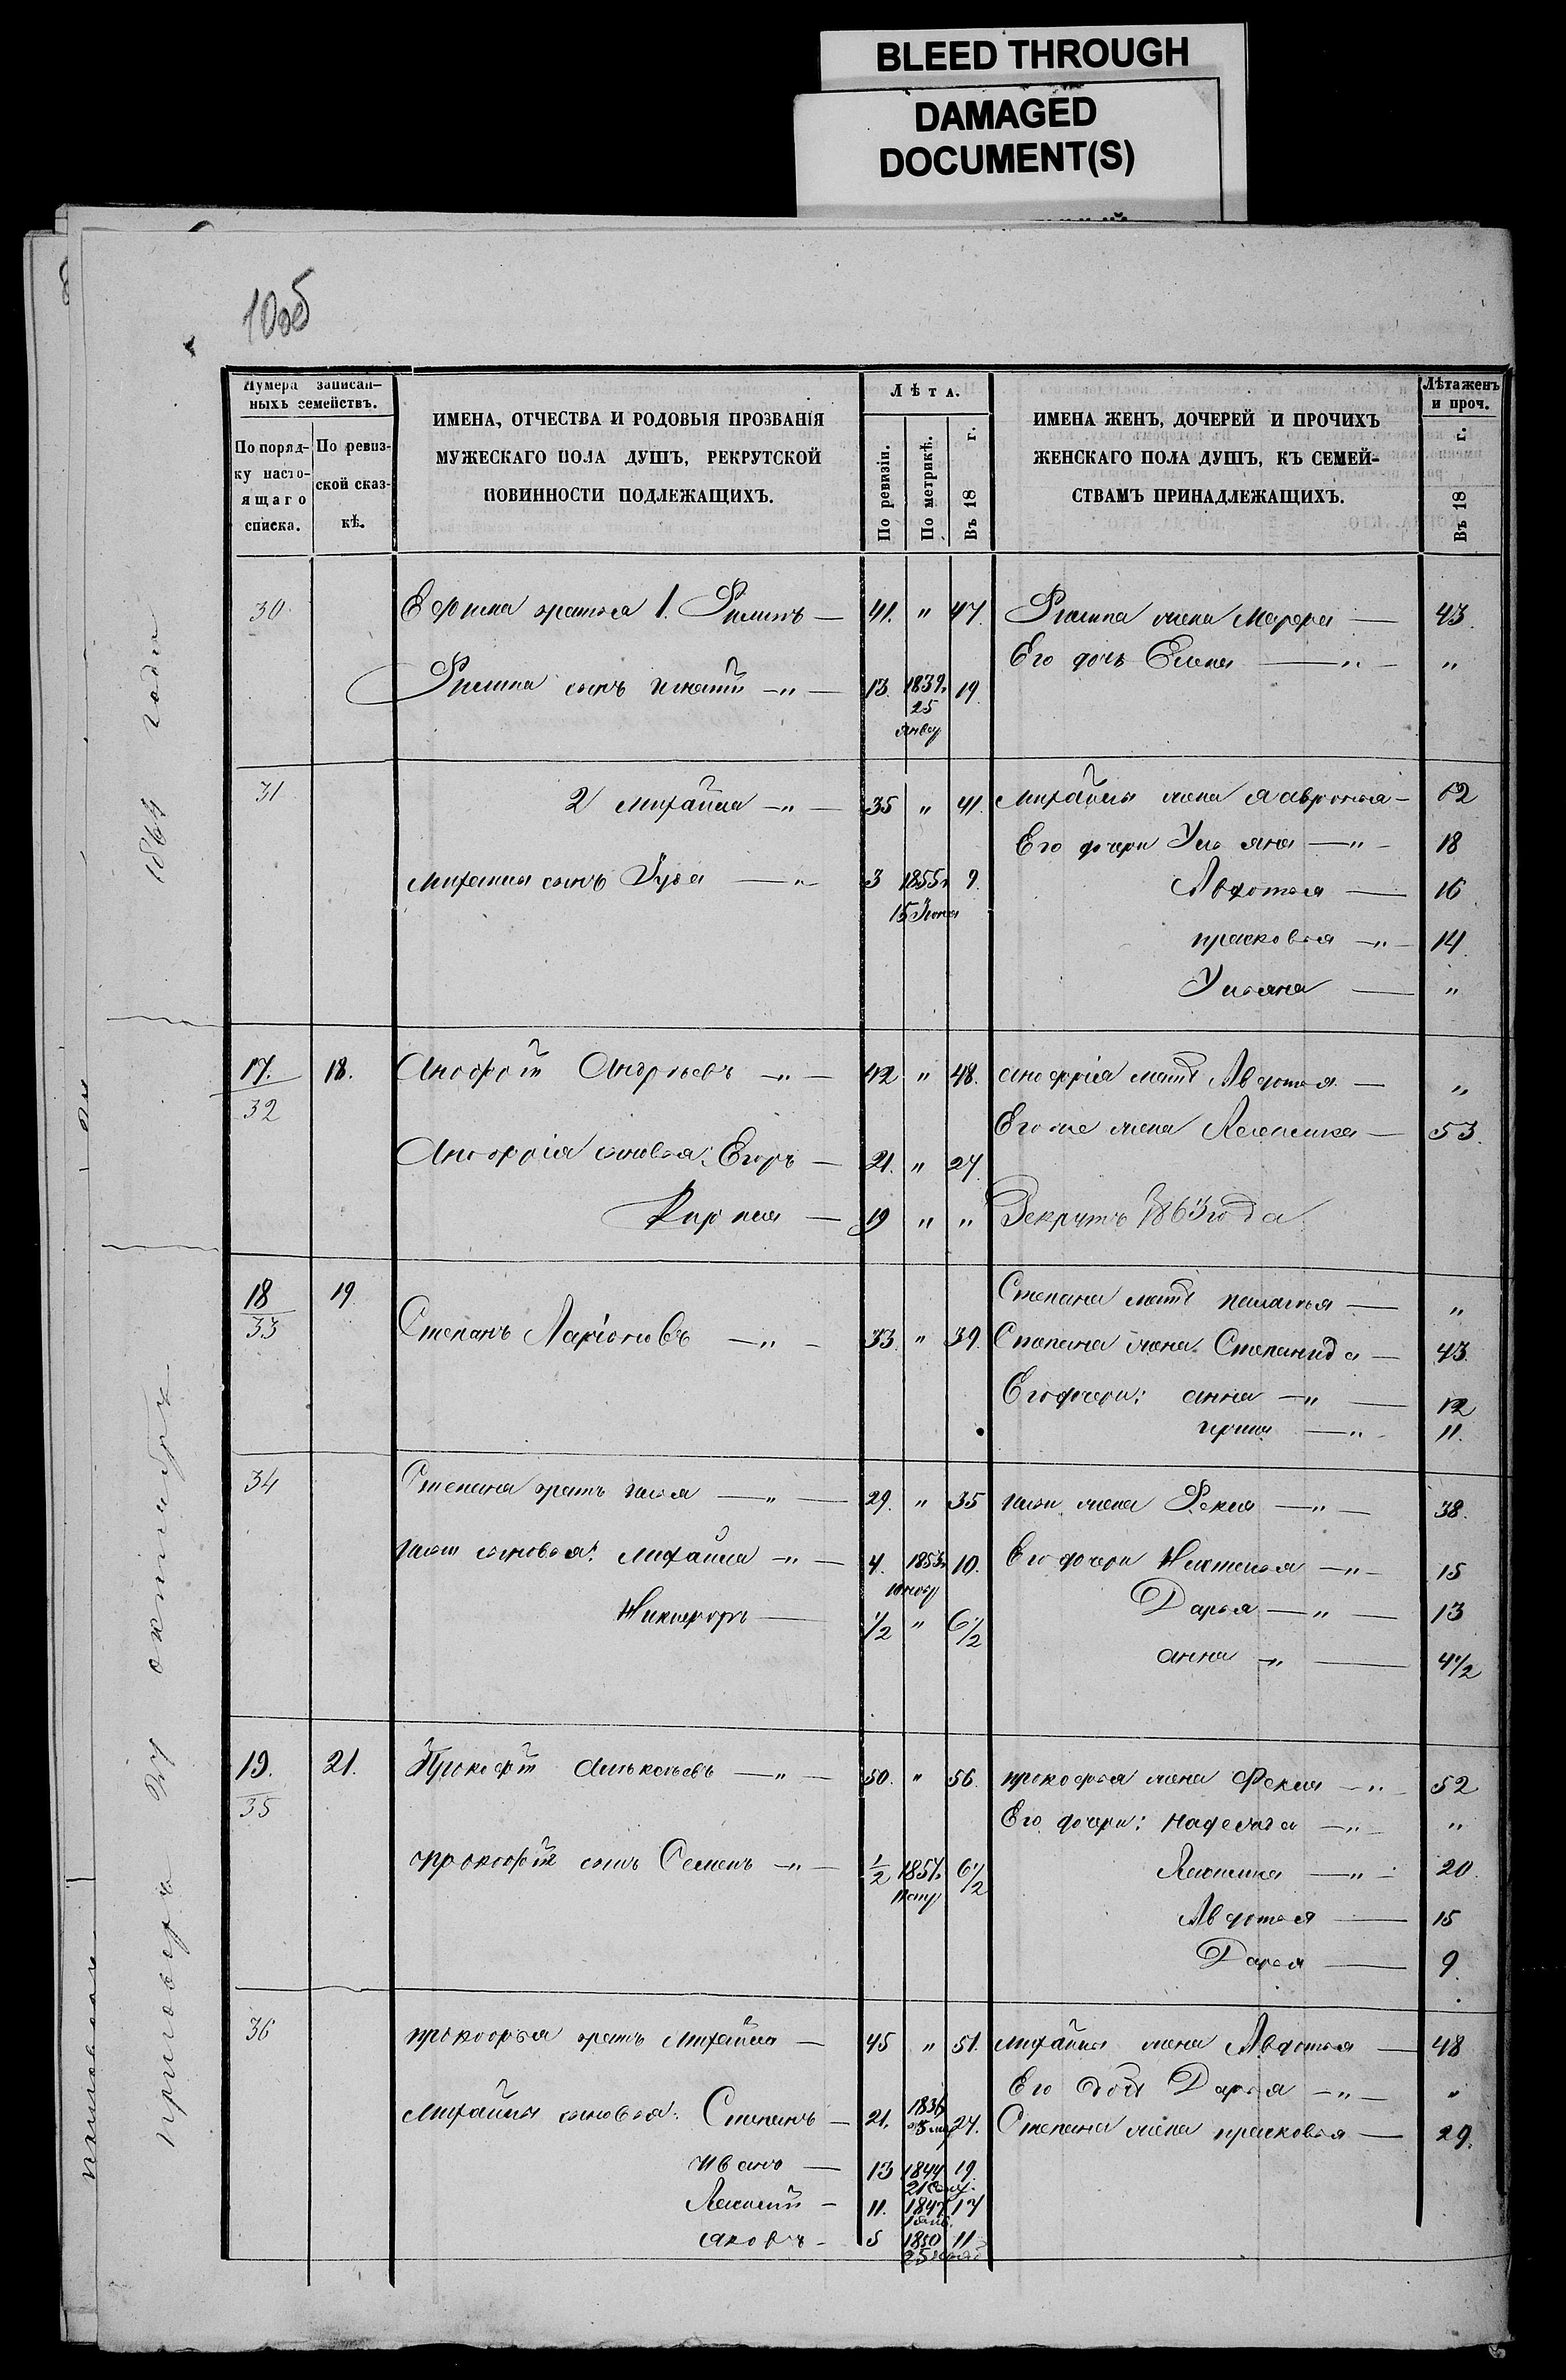 BLEED THROUGH
DAMAGED
DOCUMENT(S)
10об
Нумера записан-
ныхъ семействъ.
По поряд-
ку насто-
ящаго
списка.
По ревиз-
ской сказ-
кѣ.
ИМЕНА, ОТЧЕСТВА И РОДОВЫЯ ПРОЗВАНІЯ
МУЖЕСКАГО ПОЛА ДУШЪ, РЕКРУТСКОЙ
ПОВИННОСТИ ПОДЛЕЖАЩИХЪ.
Лѣта.
По ревизіи.
По метрикѣ.
Въ 18 г.
ИМЕНА ЖЕНЪ, ДОЧЕРЕЙ И ПРОЧИХЪ
ЖЕНСКАГО ПОЛА ДУШЪ, КЪ СЕМЕЙ-
СТВАМЪ ПРИНАДЛЕЖАЩИХЪ.
Лѣта женъ
и проч.
Въ 18 г.
30 Ефима братья 1. Филипъ — 41. " 47. Филипа жена Марфа — 43.
Его дочь Елена — " — "
Филипа сынъ Игнатій — " — 13. 1839. 19
25
январ
31 2 Михайла — " — 35 " 41. Михайлы жена — 52
Его дочери Ульяна — " — 18
Михайлы сынъ — " 3 1855 9. Авдотья — 16
15 Июня
прасковья — " — 14.
Ульяна — "
17. 18. Анофрій Андреевъ — " — 42 " 48. анофрія мать Авдотья — "
32
Его же жена — 53.
Анофрія сыновья: Егоръ — 21. " 27.
— 19 " " Рекрутъ 1863 года
18 19 Степана мать палагья — "
33
Степанъ Ларіоновъ — " — 33. " 39. Степана жена Степанида — 43.
Его дочери: анна — " — 12
ирина — " — 11.
34 Степана братъ илья — " — 29. " 35 ильи жена Фекла — " — 38.
ильи сыновья: Михайла — " — 4. 1853 10. Его дочери Настасья — " — 15
Никифоръ — 1/2 " 6 1/2 Дарья — " — 13
анна — " — 4 1/2
19. 21. Прокофій — " — 50. " 56. прокофья жена Фекла — " 52
35
Его дочери: Надежда — " — "
прокофія сынъ Семенъ — " — 1/2 1857. 6 1/2 — " — 20.
Авдотья — 15
Дарья — 9.
36 прокофья братъ Михайла — 45 " 51. Михайлы жена Авдотья — 48
Его дочь Дарья — " — "
Михайлы сыновья: Степанъ — 21. 1836 27. Степана жена прасковья — 29.
иванъ — 13 1844 19.
— 11. 1847 17
яковъ — 5 1850 11
25
приговоръ октября 1864 года